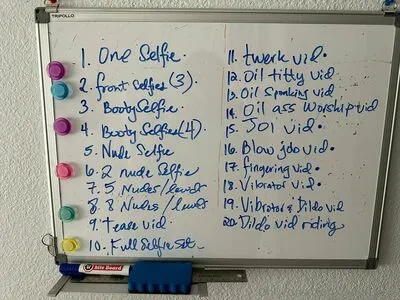 TRIPOLLO
1. One Selfie.
2. front selfies (3).
3. Booty Selfie.
4. Booty Selfies (4).
5. Nude Selfie
6. 2 nude Selfie
7. 5 Nudes/
8. 8 Nudes/
9. Tease vid.
10. Full Selfie Set.
11. twerk vid.
12. Oil titty vid
13. Oil Spanking vid
14. Oil ass Worship vid
15. JOI vid.
16. Blow job vid.
17. fingering vid.
18. Vibrator vid.
19. Vibrator & Dildo vid
20. Dildo vid riding
Board